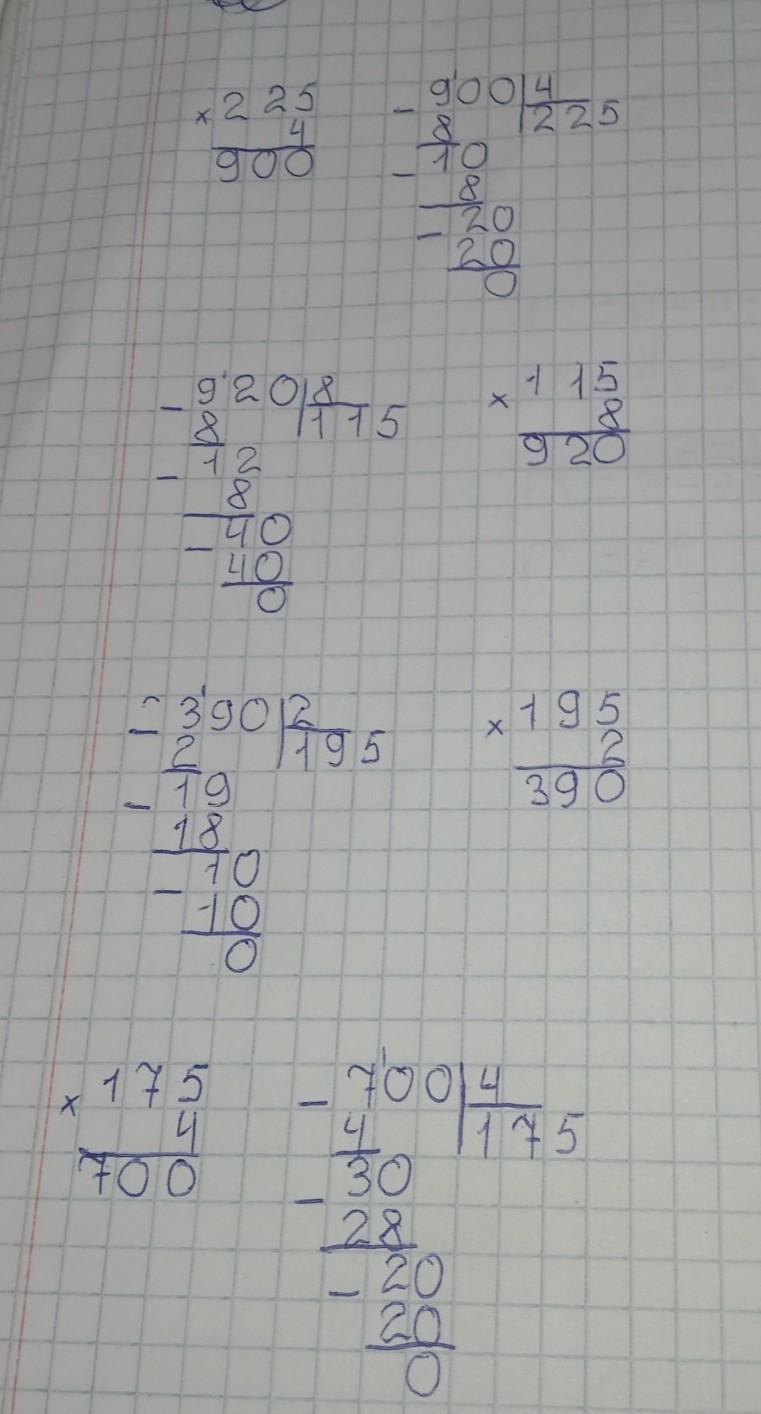 × 225
4
900
- 900 | 4
8 | 225
- 10
8
- 20
20
0
- 920 | 8
8 | 115
- 12
8
- 40
40
0
× 115
8
920
- 390 | 2
2 | 195
- 19
18
- 10
10
0
× 195
2
390
× 175
4
700
- 700 | 4
4 | 175
- 30
28
- 20
20
0